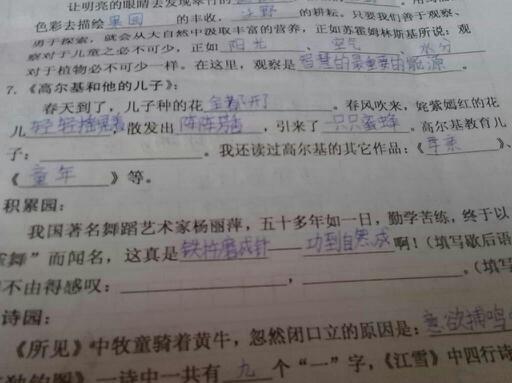 让明亮的眼睛去发现翠竹的
色彩去描绘果园的丰收，的耕耘。只要我们善于观察、
勇于探索，就会从大自然中汲取丰富的营养，正如苏霍姆林斯基所说：观
察对于儿童之必不可少，正如阳光、空气、水分
对于植物必不可少一样。在这里，观察是智慧的最重要的能源。
7. 《高尔基和他的儿子》：
春天到了，儿子种的花全都开了。春风吹来，姹紫嫣红的花
儿轻轻摇晃着，散发出阵阵芳香，引来了一只只蜜蜂。高尔基教育儿
子：____。我还读过高尔基的其它作品：《母亲》、
《童年》等。
积累园：
我国著名舞蹈艺术家杨丽萍，五十多年如一日，勤学苦练，终于以
舞”而闻名，这真是铁杵磨成针——功到自然成啊！（填写歇后语
不由得感叹：____，____。（填写
诗园：
《所见》中牧童骑着黄牛，忽然闭口立的原因是：意欲捕鸣
一诗中一共有九个“一”字，《江雪》中四行诗